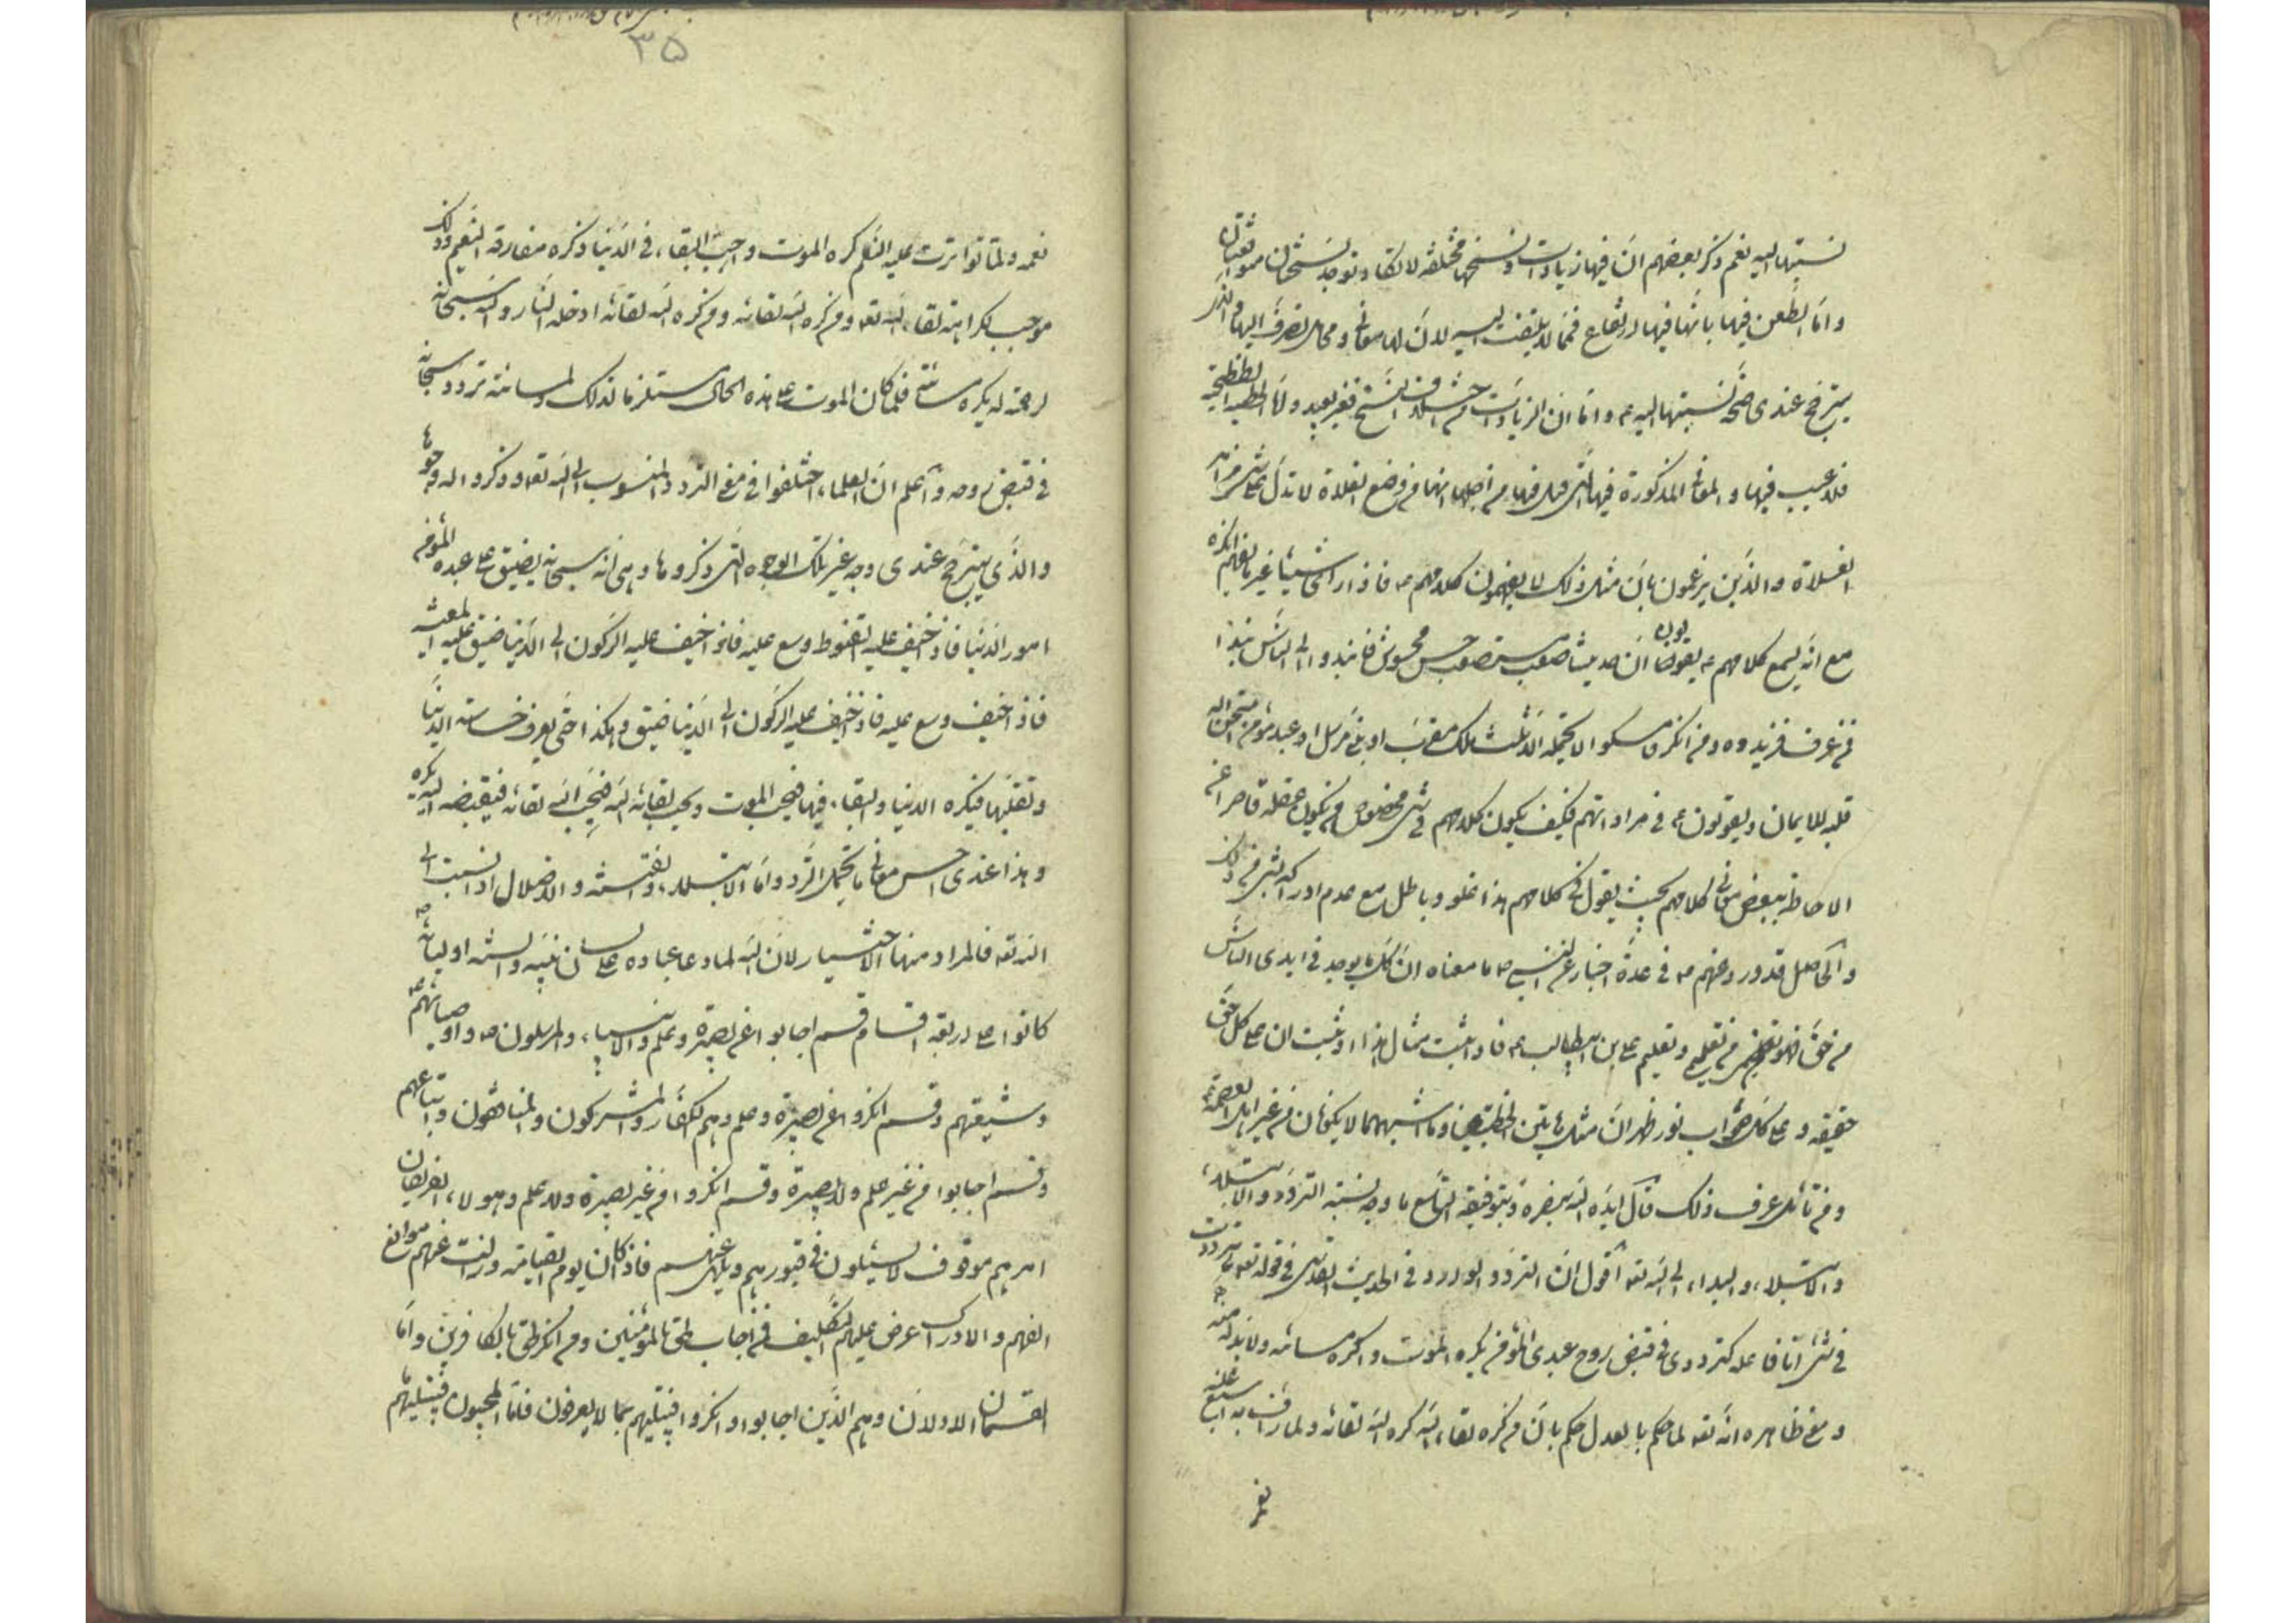 نسبتها اليه نعم ذكر بعضهم ان فيها زيادات ونسخها مختلفة لا تكاد توجد نسختان متوافقتان
واما الطعن فيها بانها فيها ارتفاع فمما لا يلتفت اليه لان لها معاني ومحامل تصرف اليها والذي
يترجح عندي صحة نسبتها اليه ع واما ان الزيادات من اختلاف النسخ فغير بعيد واما الخطبة الططنجية
فلا عيب فيها والمعاني المذكورة فيها التي قيل فيها من اجلها انها من وضع الغلاة لا تدل على شيء من امر
الغلاة والذين يزعمون بان مثل ذلك لا يفهمون كلامهم ع فاذا راى شيئا غير ما يفهم انكره
مع انه يسمع كلامهم ع يقولون ان حديثنا صعب مستصعب خشن مخشوش فانبذوا الى الناس نبذا
فمن عرف فزيدوه ومن انكر فامسكوا لا يحتمله الا ثلث ملك مقرب او نبي مرسل او عبد مؤمن امتحن الله
قلبه للايمان ويقولون ع في مراداتهم فكيف يكون كلامهم في شيء مخصوص فيكون عقله قاصرا عن
الاحاطة ببعض معاني كلامهم بحيث يقول في كلامهم هذا غلو وباطل مع عدم ادراكه لشيء من ذلك
والحاصل قد ورد عنهم ع في عدة اخبار عن النبي ص ما معناه ان كل ما يوجد في ايدي الناس
من حق فهو من تعليمي وتعليم علي بن ابيطالب ع فاذا ثبت مثال هذا او ثبت ان على كل حق
حقيقة وعلى كل صواب نور ظهر ان مثل هاتين الخطبتين وما اشبههما لا يكونان من غير اهل العصمة ع
ومن تأمل عرف ذلك قال ايده الله بنصره وبتوفيقه التاسع ما وجه نسبة التردد والابتلاء
والابتلاء والبداء الى الله تعه اقول ان التردد الوارد في الحديث القدسي في قوله تعه ما ترددت
في شيء انا فاعله كترددي في قبض روح عبدي المؤمن يكره الموت واكره مسائته ولا بد له منه
ومعنى ظاهره انه تعه لما حكم بالعدل حكم بان من كره لقاء الله كره الله لقائه ولما رأف به اسبغ عليه
نعمه
٣٥
نعمه ولما تواترت عليه النعم كره الموت واحب البقاء في الدنيا وكره مفارقة النعيم وذلك
موجب لكراهته لقاء الله تعه ومن كره الله لقائه ومن كره الله لقائه ادخله النار والله سبحانه
لرحمته له يكره مسائته فلما كان الموت على هذه الحال مستلزما لذلك ولمسائته تردد سبحانه
في قبض روحه واعلم ان العلماء اختلفوا في معنى التردد المنسوب الى الله تعه وذكروا له وجوها
والذي يترجح عندي وجه غير تلك الوجوه التي ذكروها وهي انه سبحانه يضيق على عبده المؤمن
امور الدنيا فاذا خيف عليه القنوط وسع عليه فاذا خيف عليه الركون الى الدنيا ضيق عليه المعيشة
فاذا خيف وسع عليه فاذا خيف عليه الركون الى الدنيا ضيق وهكذا حتى يعرف خساسة الدنيا
وتقلبها فيكره الدنيا والبقاء فيها فيحب الموت ويحب لقائه الله فيحب الله لقائه فيقبضه اليه
وهذا عندي احسن معاني ما يحتمل التردد واما الابتلاء والفتنة والاضلال اذا نسبت الى
الله تعه فالمراد منها الاختبار لان الله لما دعا عباده على لسان نبيه والسنة اوليائه
كانوا على اربعة اقسام قسم اجابوا عن بصيرة وعلم والانبياء والمرسلون ص واوصيائهم ع
وشيعتهم وقسم انكروا عن بصيرة وعلم وهم الكفار والمشركون والمنافقون واتباعهم
وقسم اجابوا من غير علم ولا بصيرة وقسم انكروا من غير بصيرة ولا علم وهولاء الفريقان
امرهم موقوف لا يسئلون في قبورهم ويلهى عنهم فاذا كان يوم القيامة وزالت عنهم موانع
الفهم والادراك عرض عليهم التكليف فمن اجاب لحق بالمؤمنين ومن انكر لحق بالكافرين واما
القسمان الاولان وهم الذين اجابوا وانكروا فيبتليهم بما لا يعرفون فاما المجيبون فيبتليهم